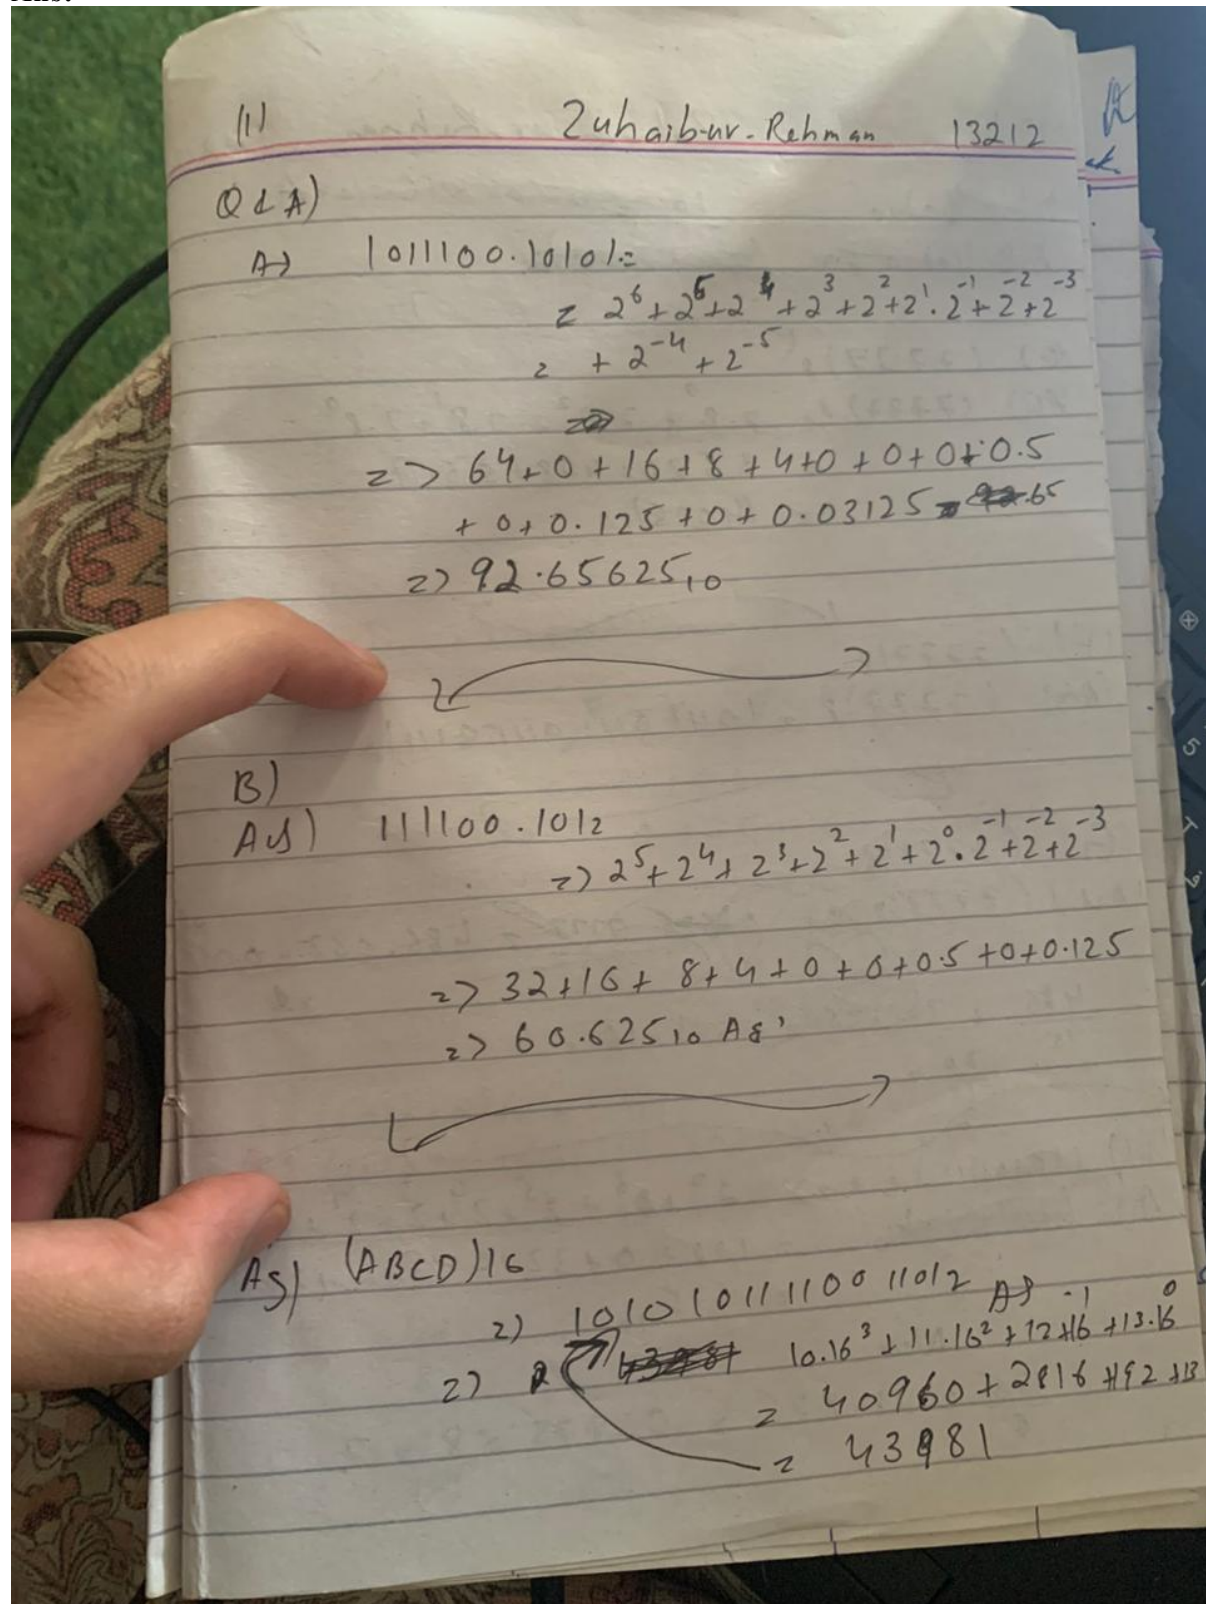 Ans:
(1) Zuhaib-ur-Rehman 13212
Q 1 A)
A) 1011100.10101 =
= 2⁶ + 2⁵ + 2⁴ + 2³ + 2² + 2¹ . 2⁻¹ + 2⁻² + 2⁻³
= + 2⁻⁴ + 2⁻⁵
=> 64 + 0 + 16 + 8 + 4 + 0 + 0 + 0 + 0.5
+ 0 + 0.125 + 0 + 0.03125 = .65
=> 92.65625₁₀
B)
As) 111100.101₂
=> 2⁵ + 2⁴ + 2³ + 2² + 2¹ + 2⁰ . 2⁻¹ + 2⁻² + 2⁻³
=> 32 + 16 + 8 + 4 + 0 + 0 + 0.5 + 0 + 0.125
=> 60.625₁₀ As'
As) (ABCD)16
=> 1010101111001101₂ As
=> 10.16³ + 11.16² + 12 + 16⁻¹ + 13.16⁰
= 40960 + 2816 + 192 + 13
= 43981